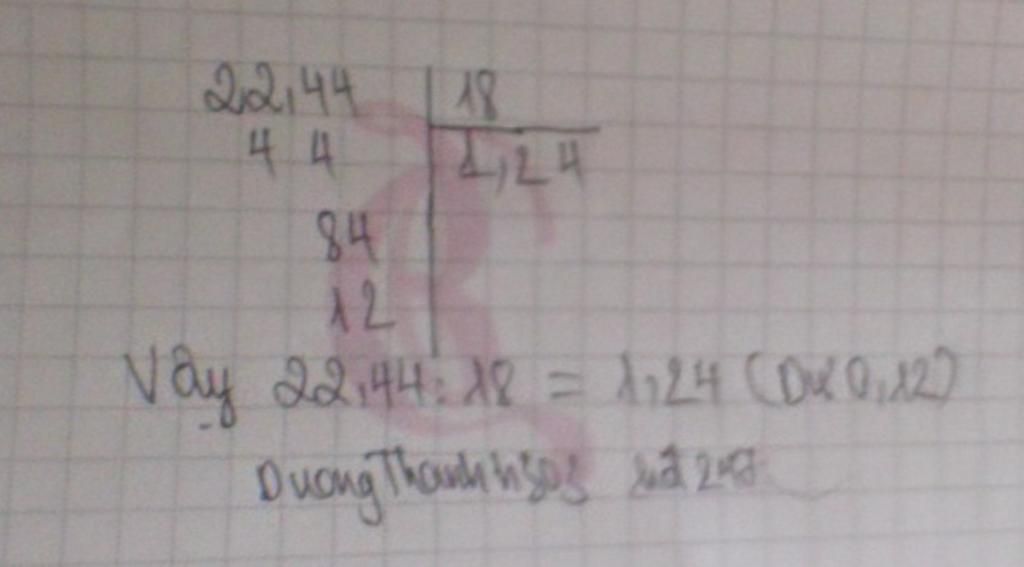 22,44 18
4 4 1,24
84
12
Vậy 22,44 : 18 = 1,24 (Dư 0,12)
Duong Thanh